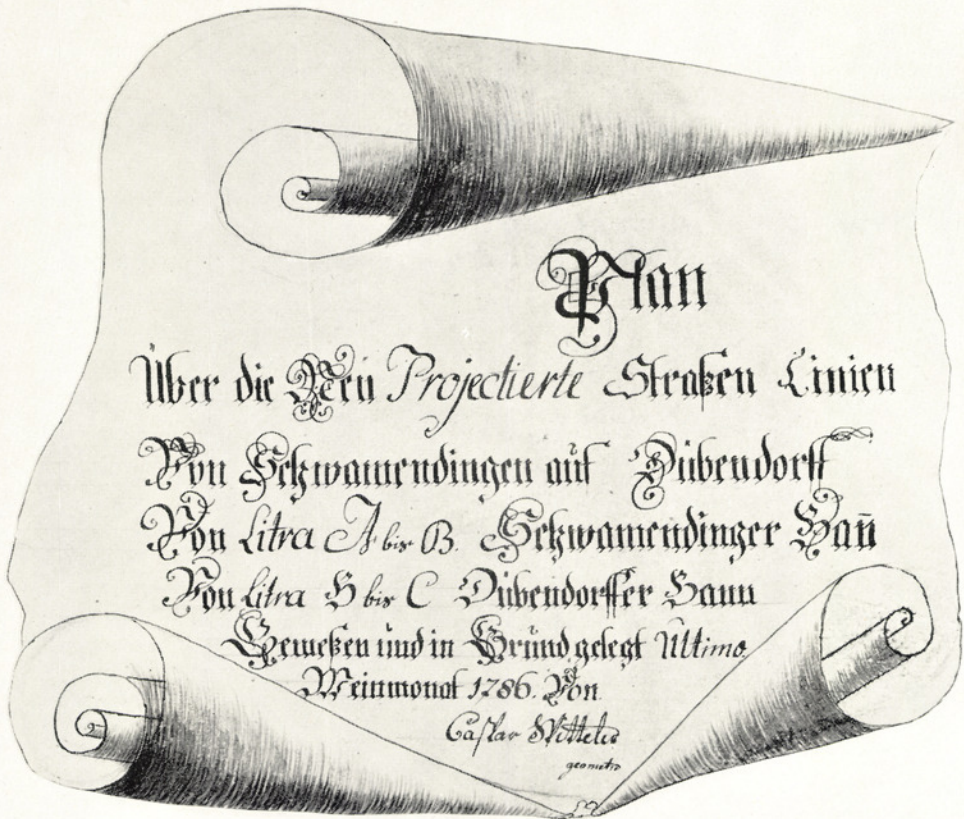 Plan
Über die Neü Projectierte Straßen Linien
Von Schwamendingen auf Dübendorff
Von Litra A bis B. Schwamendinger Bañ
Von Litra B bis C Dübendorffer Bann
Gemeßen und in Grund gelegt Ultimo
Weinmonat 1786. Von
Caspar
geometra